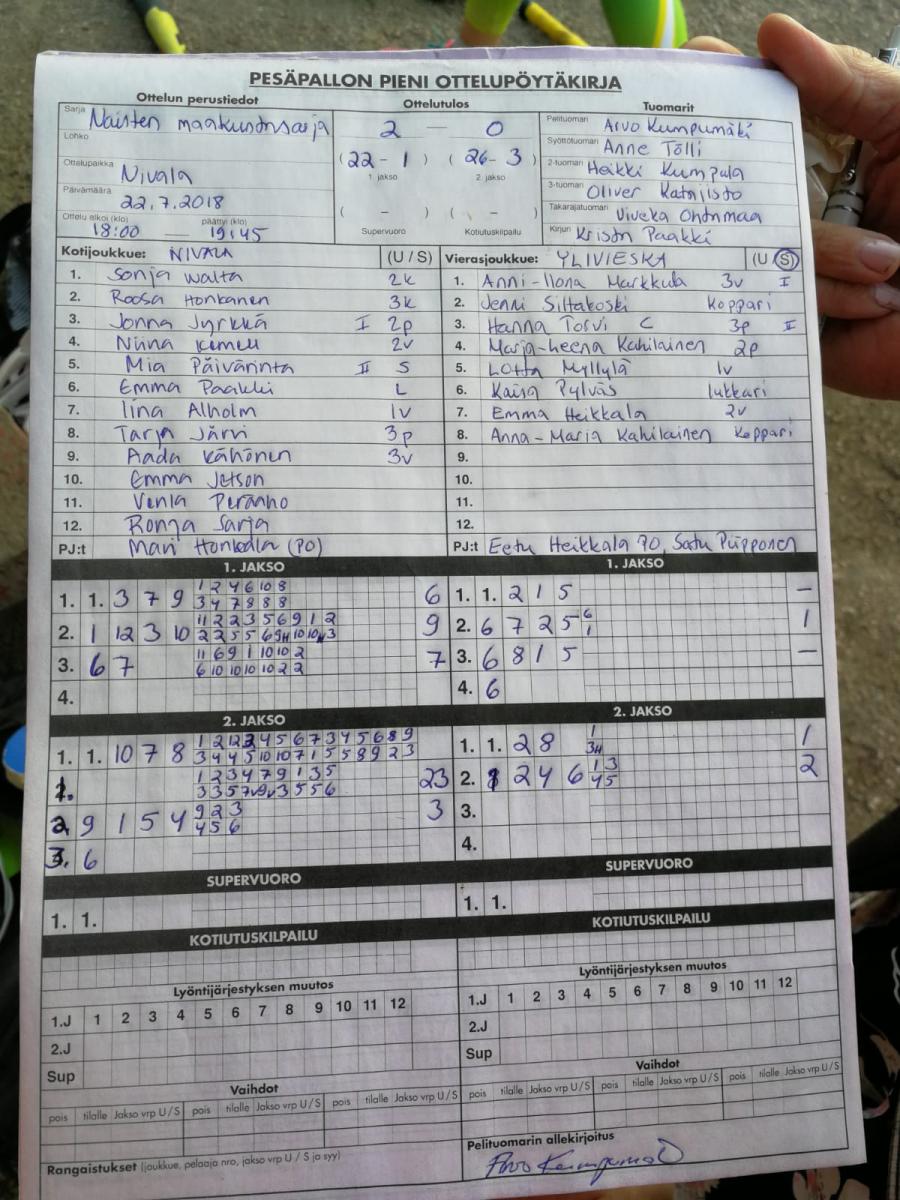 PESÄPALLON PIENI OTTELUPÖYTÄKIRJA
Ottelun perustiedot
Sarja Naisten maakuntasarja
Lohko
Ottelupaikka Nivala
Päivämäärä 22.7.2018
Ottelu alkoi (klo) 18:00 — päättyi (klo) 19:45
Ottelutulos
2 — 0
(22 - 1) (26 - 3)
1. jakso 2. jakso
( - ) ( - )
Supervuoro Kotiutuskilpailu
Tuomarit
Pelituomari Arvo Kumpumäki
Syöttötuomari Anne Tölli
2-tuomari Heikki Kumpula
3-tuomari Oliver Katajisto
Takarajatuomari Viveka Ohtamaa
Kirjuri Krista Paakki
Kotijoukkue: NIVALA (U / S)
1. Sonja Walta 2k
2. Roosa Honkanen 3k
3. Jonna Jyrkkä I 2p
4. Niina 2v
5. Mia Päivärinta II S
6. Emma Paakki L
7. Iina Alholm 1v
8. Tarja Järvi 3p
9. Aada Kähönen 3v
10. Emma
11. Venla
12. Ronja Sarja
PJ:t Mari Honkala (PO)
Vierasjoukkue: YLIVIESKA (U / S)
1. Anni-Ilona Markkula 3v I
2. Jenni Siltakoski Koppari
3. Hanna Torvi C 3p II
4. Marja-Leena Kahilainen 2p
5. Lotta Myllylä 1v
6. Kaisa Pylväs lukkari
7. Emma Heikkala 2v
8. Anna-Maria Kahilainen Koppari
9.
10.
11.
12.
PJ:t Eetu Heikkala PO, Satu Piipponen
1. JAKSO
1. 1. 3 7 9 6
1 2 4 6 10 8
3 4 7 8 8 8
2. 1 12 3 10 9
11 2 2 3 5 6 9 1 2
3. 6 7 7
11 6 9 1 10 10 2
6 10 10 10 10 2 2
4.
1. JAKSO
1. 1. 2 1 5 –
2. 6 7 2 5 1
6
1
3. 6 8 1 5 –
4. 6
2. JAKSO
1. 1. 10 7 8
3 4 4 5 10 10 7 1 5 5 8 9 2 3
1. 23
1 2 3 4 7 9 1 3 5
2. 9 1 5 4 3
9 2 3
4 5 6
3. 6
2. JAKSO
1. 1. 2 8 1
1
3H
2. 2 4 6 2
1 3
4 5
3.
4.
SUPERVUORO
1. 1.
SUPERVUORO
1. 1.
KOTIUTUSKILPAILU
KOTIUTUSKILPAILU
Lyöntijärjestyksen muutos
1.J 1 2 3 4 5 6 7 8 9 10 11 12
2.J
Sup
Lyöntijärjestyksen muutos
1.J 1 2 3 4 5 6 7 8 9 10 11 12
2.J
Sup
Vaihdot
pois tilalle Jakso vrp U / S pois tilalle Jakso vrp U / S pois tilalle Jakso vrp U / S
Vaihdot
pois tilalle Jakso vrp U / S pois tilalle Jakso vrp U / S pois tilalle Jakso vrp U / S
Rangaistukset (joukkue, pelaaja nro, jakso vrp U / S ja syy)
Pelituomarin allekirjoitus